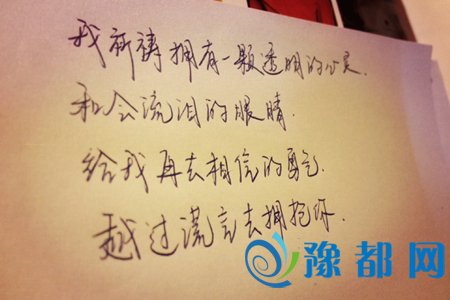 我祈祷拥有一颗透明的心灵.
和会流泪的眼睛.
给我再去相信的勇气.
越过谎言去拥抱你.
豫都网